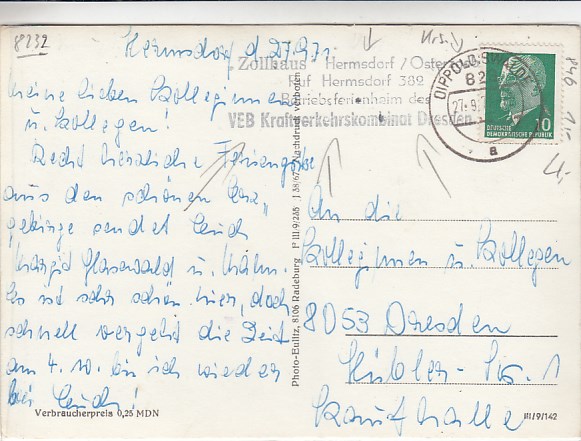 8232
Hermsdorf d. 27.9.71
Zollhaus Hermsdorf / Osterz
Ruf Hermsdorf 382
Betriebsferienheim des
VEB Kraftverkehrskombinat Dresden
DIPPOLDISWALDE
82
27.-9.
a
DEUTSCHE
DEMOKRATISCHE REPUBLIK
10
Meine lieben Kolleginnen
u. Kollegen!
Recht herzliche Feriengrüße
aus den schönen Erz„
gebirge sendet Euch
Margid Glasewald u.
Es ist sehr schön hier, doch
schnell vergeht die Zeit
am 4. 10. bin ich wieder
bei Euch!
Verbraucherpreis 0,25 MDN
Photo-Eulitz, 8106 Radeburg P III/9/235 J 38/67 Nachdruck verboten
An die
Kolleginnen u. Kollegen
8053 Dresden
Hübler-Str. 1
Kaufhalle
III/9/142